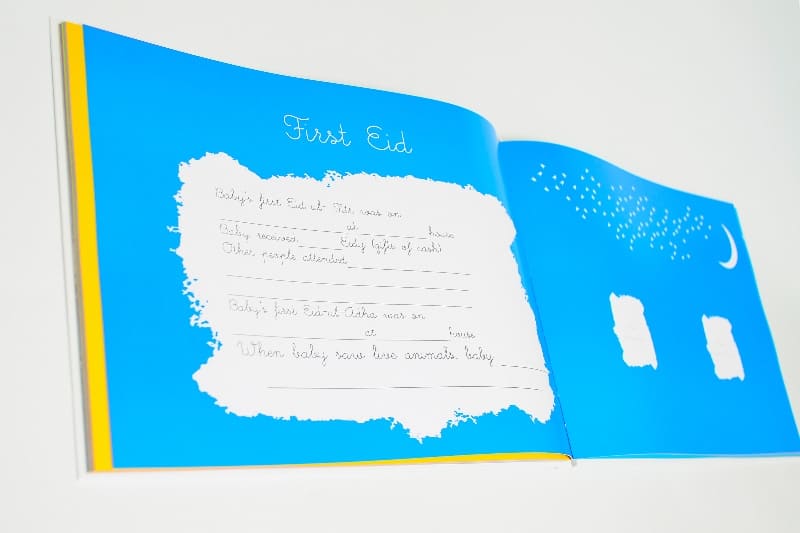 First Eid
Baby's first Eid ul- Fitr was on
at house
Baby received Eidy (gifts of cash)
Other people attended
Baby's first Eid-ul Adha was on
at house
When baby saw live animals, baby